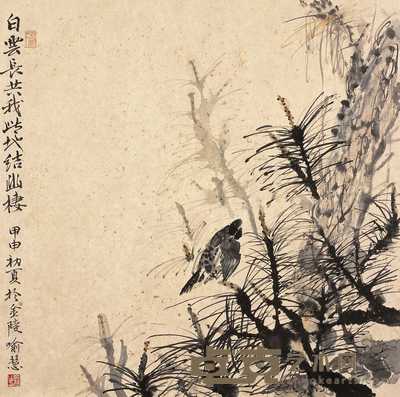 白云長共我此地结幽棲
甲申初夏於金陵喻慧